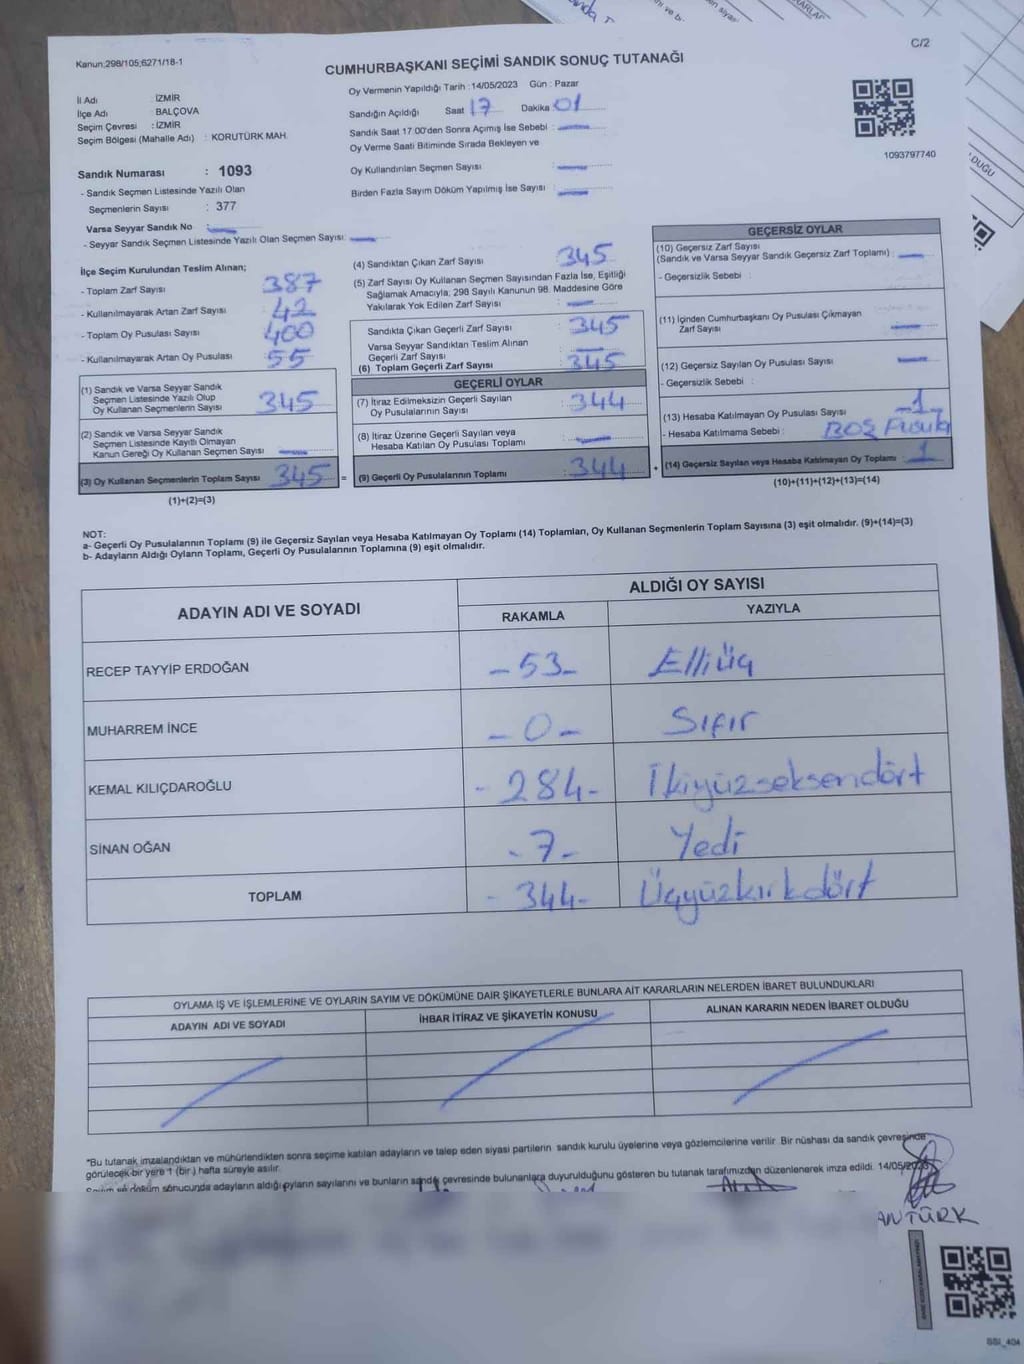 Kanun;298/105;6271/18-1
C/2
CUMHURBAŞKANI SEÇİMİ SANDIK SONUÇ TUTANAĞI
İl Adı : İZMİR
İlçe Adı : BALÇOVA
Seçim Çevresi : İZMİR
Seçim Bölgesi (Mahalle Adı) : KORUTÜRK MAH.
Sandık Numarası : 1093
- Sandık Seçmen Listesinde Yazılı Olan
Seçmenlerin Sayısı : 377
Varsa Seyyar Sandık No
- Seyyar Sandık Seçmen Listesinde Yazılı Olan Seçmen Sayısı:
Oy Vermenin Yapıldığı Tarih :14/05/2023 Gün : Pazar
Sandığın Açıldığı Saat 17 Dakika 01
Sandık Saat 17:00'den Sonra Açımış İse Sebebi :
Oy Verme Saati Bitiminde Sırada Bekleyen ve
Oy Kullandırılan Seçmen Sayısı :
Birden Fazla Sayım Döküm Yapılmış İse Sayısı :
1093797740
İlçe Seçim Kurulundan Teslim Alınan;
- Toplam Zarf Sayısı : 387
- Kullanılmayarak Artan Zarf Sayısı : 42
- Toplam Oy Pusulası Sayısı : 400
- Kullanılmayarak Artan Oy Pusulası : 55
(1) Sandık ve Varsa Seyyar Sandık
Seçmen Listesinde Yazılı Olup
Oy Kullanan Seçmenlerin Sayısı : 345
(2) Sandık ve Varsa Seyyar Sandık
Seçmen Listesinde Kayıtlı Olmayan
Kanun Gereği Oy Kullanan Seçmen Sayısı :
(3) Oy Kullanan Seçmenlerin Toplam Sayısı : 345 =
(1)+(2)=(3)
(4) Sandıktan Çıkan Zarf Sayısı : 345
(5) Zarf Sayısı Oy Kullanan Seçmen Sayısından Fazla İse, Eşitliği
Sağlamak Amacıyla, 298 Sayılı Kanunun 98. Maddesine Göre
Yakılarak Yok Edilen Zarf Sayısı :
Sandıkta Çıkan Geçerli Zarf Sayısı : 345
Varsa Seyyar Sandıktan Teslim Alınan
Geçerli Zarf Sayısı :
(6) Toplam Geçerli Zarf Sayısı : 345
GEÇERLİ OYLAR
(7) İtiraz Edilmeksizin Geçerli Sayılan
Oy Pusulalarının Sayısı : 344
(8) İtiraz Üzerine Geçerli Sayılan veya
Hesaba Katılan Oy Pusulası Toplamı :
(9) Geçerli Oy Pusulalarının Toplamı : 344 +
GEÇERSİZ OYLAR
(10) Geçersiz Zarf Sayısı
(Sandık ve Varsa Seyyar Sandık Geçersiz Zarf Toplamı) :
- Geçersizlik Sebebi :
(11) İçinden Cumhurbaşkanı Oy Pusulası Çıkmayan
Zarf Sayısı :
(12) Geçersiz Sayılan Oy Pusulası Sayısı :
- Geçersizlik Sebebi :
(13) Hesaba Katılmayan Oy Pusulası Sayısı : -1-
- Hesaba Katılmama Sebebi : BOŞ Pusula
(14) Geçersiz Sayılan veya Hesaba Katılmayan Oy Toplamı : 1
(10)+(11)+(12)+(13)=(14)
NOT:
a- Geçerli Oy Pusulalarının Toplamı (9) ile Geçersiz Sayılan veya Hesaba Katılmayan Oy Toplamı (14) Toplamları, Oy Kullanan Seçmenlerin Toplam Sayısına (3) eşit olmalıdır. (9)+(14)=(3)
b- Adayların Aldığı Oyların Toplamı, Geçerli Oy Pusulalarının Toplamına (9) eşit olmalıdır.
ADAYIN ADI VE SOYADI
ALDIĞI OY SAYISI
RAKAMLA YAZIYLA
RECEP TAYYİP ERDOĞAN -53- Elliüç
MUHARREM İNCE -0- Sıfır
KEMAL KILIÇDAROĞLU -284- İkiyüzseksendört
SİNAN OĞAN -7- Yedi
TOPLAM -344- Üçyüzkırkdört
OYLAMA İŞ VE İŞLEMLERİNE VE OYLARIN SAYIM VE DÖKÜMÜNE DAİR ŞİKAYETLERLE BUNLARA AİT KARARLARIN NELERDEN İBARET BULUNDUKLARI
ADAYIN ADI VE SOYADI İHBAR İTİRAZ VE ŞİKAYETİN KONUSU ALINAN KARARIN NEDEN İBARET OLDUĞU
*Bu tutanak imzalandıktan ve mühürlendikten sonra seçime katılan adayların ve talep eden siyasi partilerin sandık kurulu üyelerine veya gözlemcilerine verilir. Bir nüshası da sandık çevresinde
görülecek bir yere 1 (bir) hafta süreyle asılır.
Sayım ve döküm sonucunda adayların aldığı oyların sayılarını ve bunların sandık çevresinde bulunanlara duyurulduğunu gösteren bu tutanak tarafımızdan düzenlenerek imza edildi. 14/05/2023
ANTÜRK
SSI_404